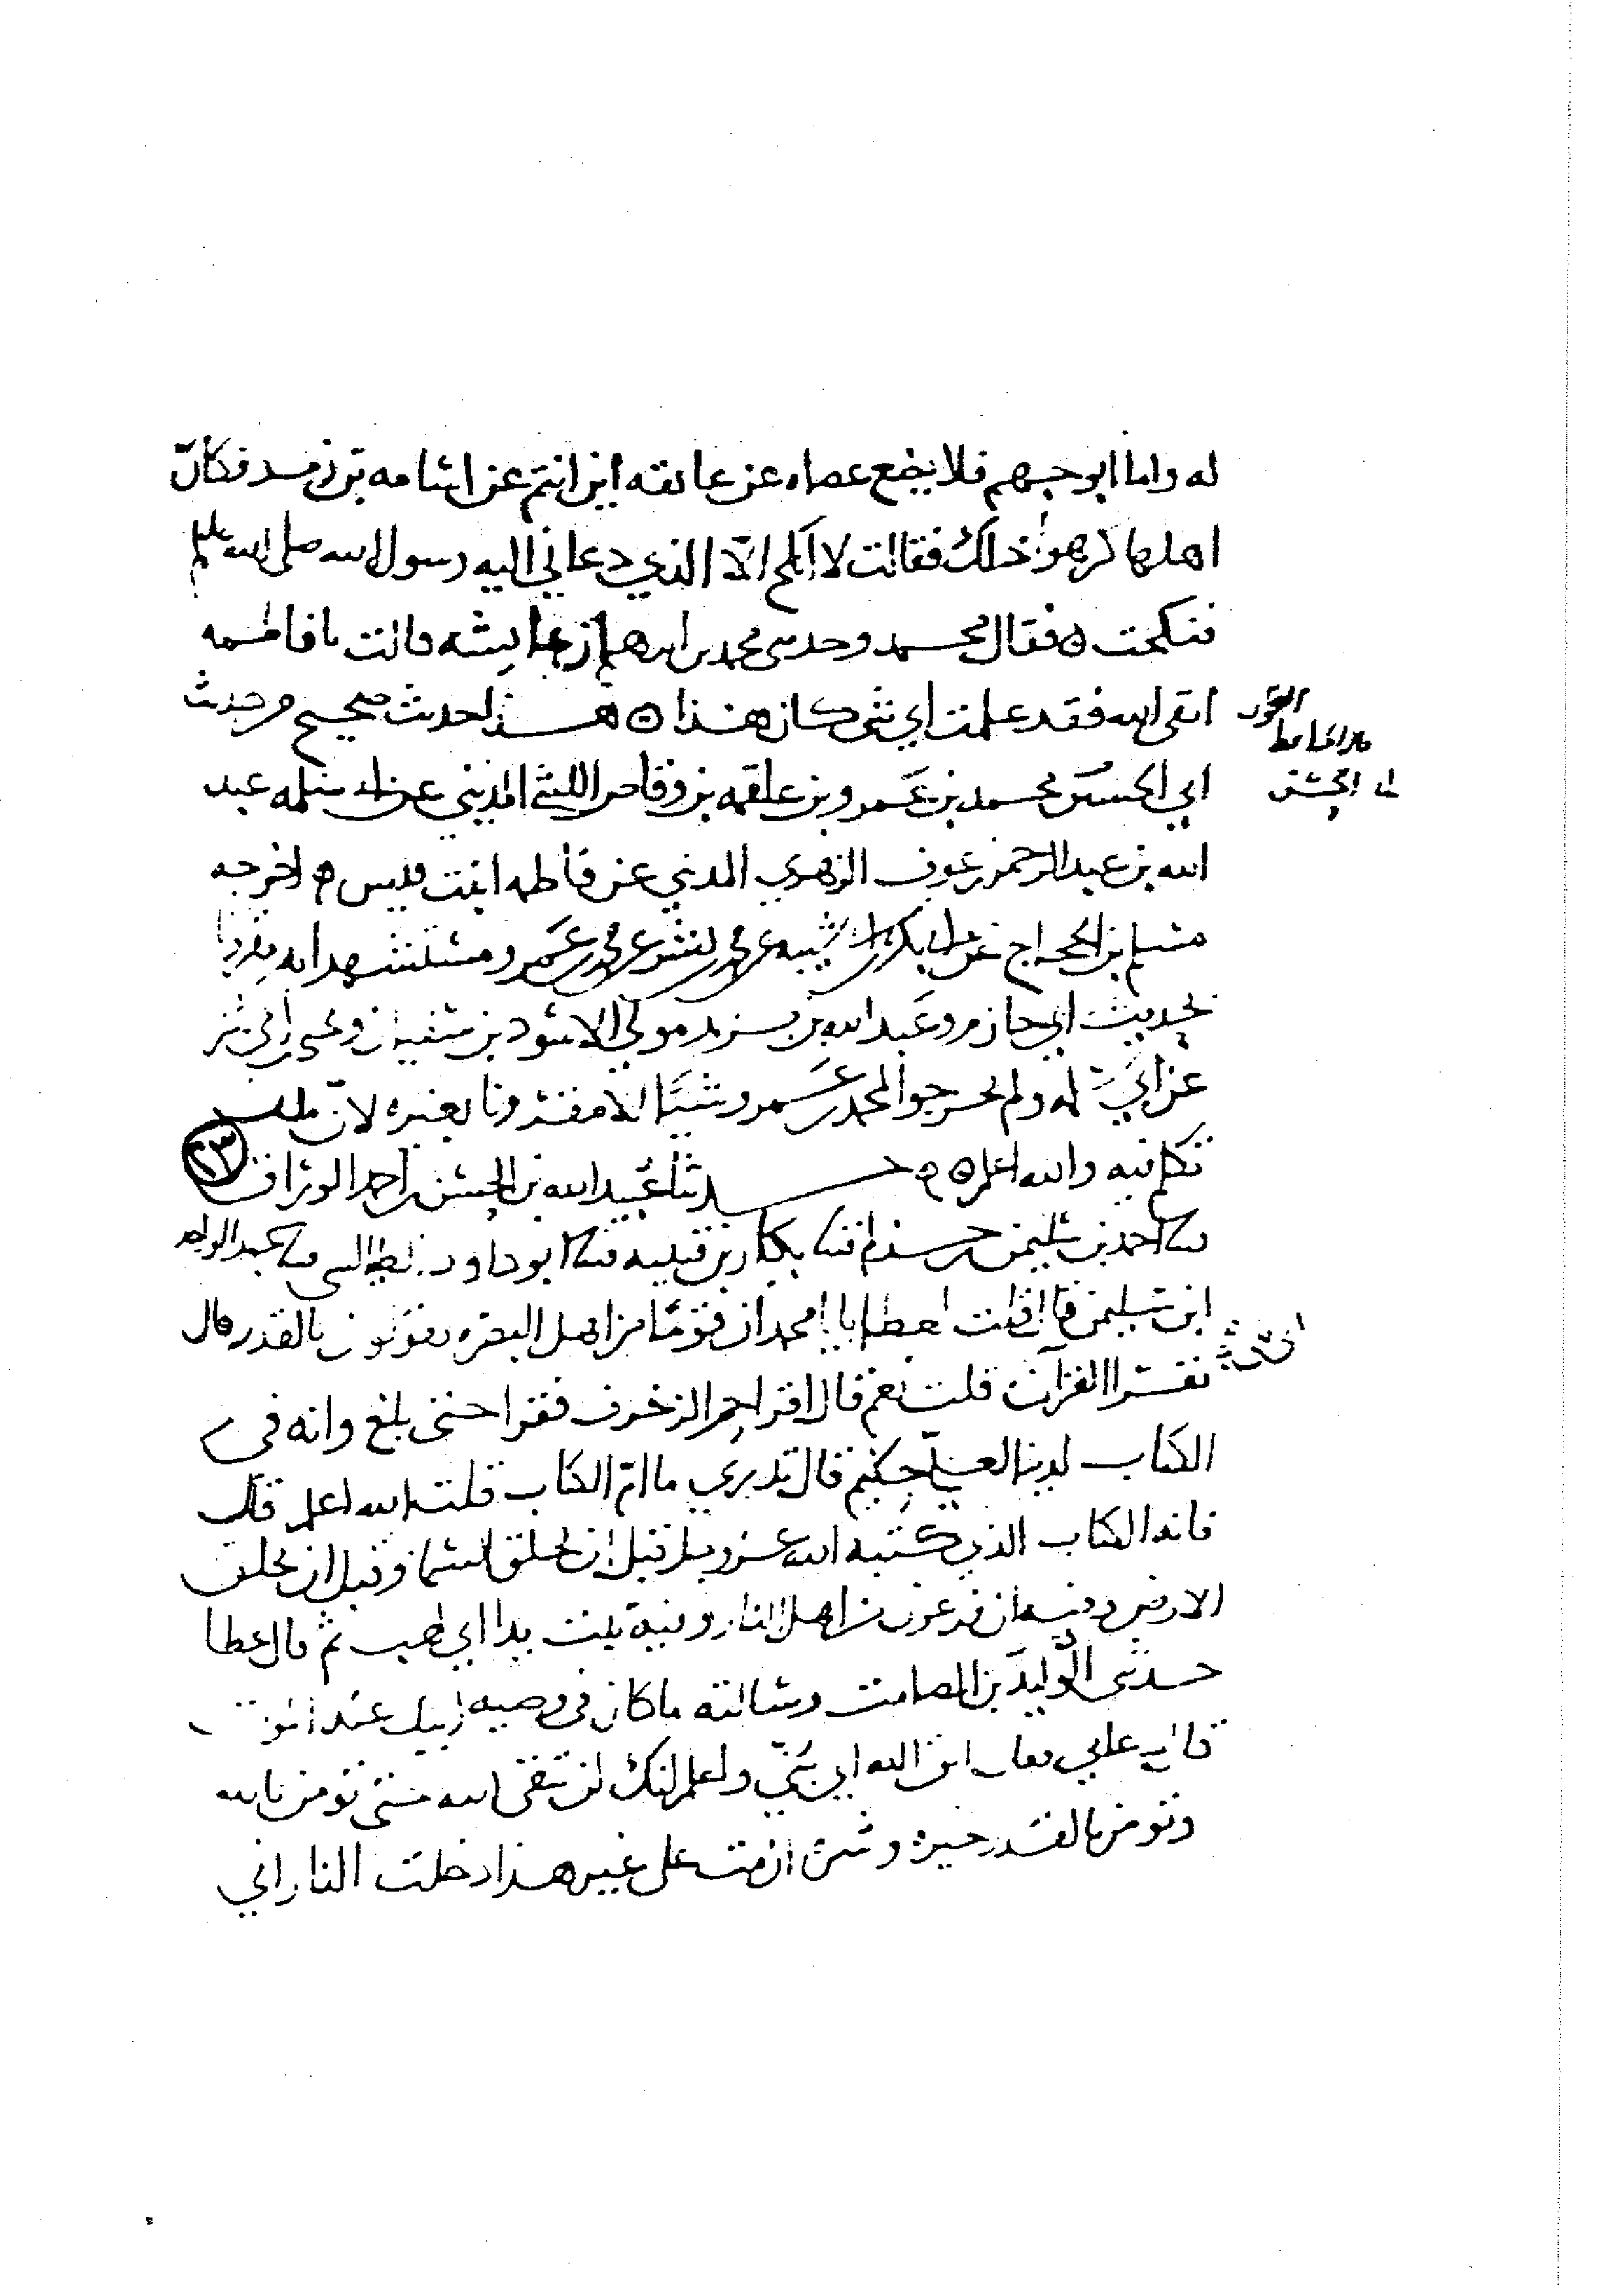 له واما ابو جهم فلا يضع عصاه عن عاتقه اين انتم عن اسامه بن زيد فكان
اهلها كرهوا ذلك فقالت لا انكح الا الذي دعاني اليه رسول الله صلى الله عليه وسلم
فنكحته فقال محمد وحدثني محمد بن ابرهيم ان عايشه قالت يا فاطمه
اتقي الله فقد علمت اي شي كان هذا هذا حديث صحيح من حديث
ابي الحسن محمد بن عمرو بن علقمه بن وقاص الليثي المديني عن ابي سلمه عبد
الله بن عبد الرحمن بن عوف الزهري المدني عن فاطمه ابنت قيس اخرجه
مسلم بن الحجاج عن ابي بكر بن ابي شيبه عن محمد بن بشر عن محمد بن عمرو مستشهدا به مقرونا
بحديث ابي حازم وعبد الله بن يزيد مولى الاسود بن سفيان ويحيى بن ابي كثير
عن ابي سلمه ولم يخرجوا لمحمد بن عمرو شيئا الا مقرونا بغيره لان مالك
تكلم فيه والله اعلم حدثنا عبيد الله بن الحسن بن احمد الوراق
ثنا احمد بن سليمن بن حذلم ثنا بكار بن قتيبه ثنا ابو داود الطيالسي ثنا عبد الواحد
ابن سليمن قال قلت لعطا يا با محمد ان قوما من اهل البصره يقولون بالقدر قال
تقرا القران قلت نعم قال اقرا حم الزخرف فقرا حتى بلغ وانه في ام
الكتاب لدينا لعلي حكيم قال تدري ما ام الكتاب قلت الله اعلم قال
فانه الكتاب الذي كتبه الله عز وجل قبل ان يخلق السما وقبل ان يخلق
الارض وفيه ان فرعون من اهل النار وفيه تبت يدا ابي لهب ثم قال عطا
حدثني الوليد بن الصامت وسالته ما كان في وصيه ابيك عند الموت
قال علي فقال اتق الله اي بني واعلم انك لن تتقي الله حتى تومن بالله
وتومن بالقدر خيره وشره ان مت على غير هذا دخلت النار اني